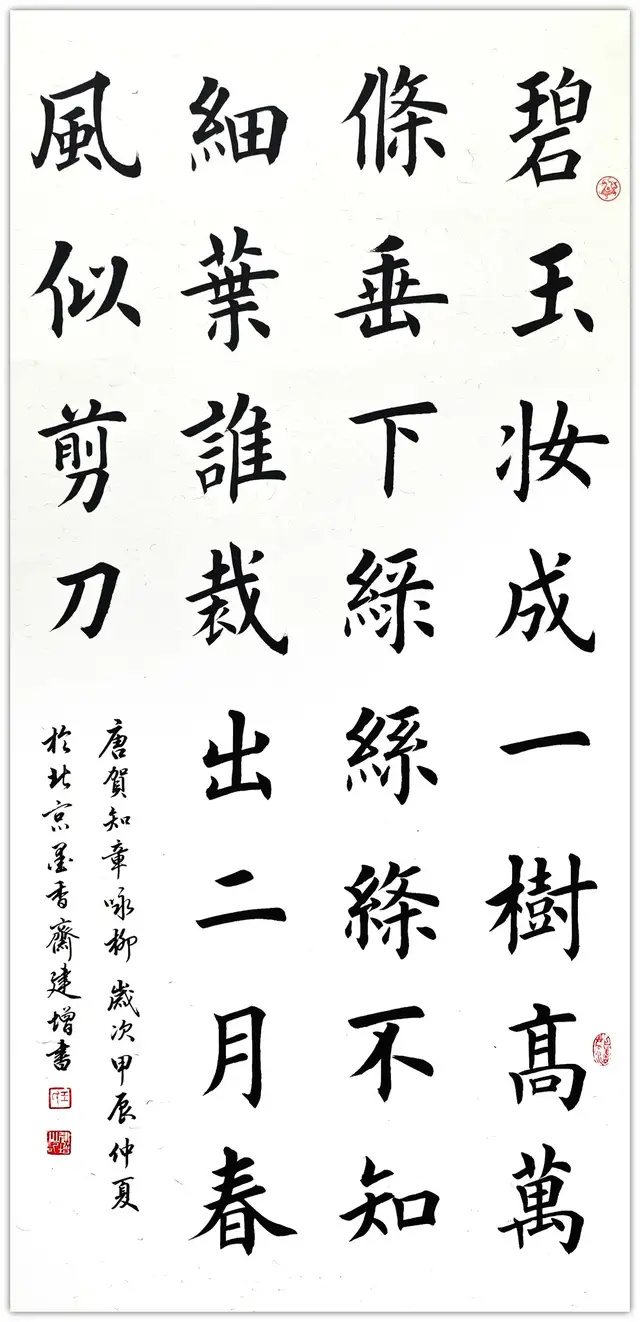 碧玉妆成一樹高萬
條垂下綠絲絛不知
細葉誰裁出二月春
風似剪刀
唐賀知章咏柳 歲次甲辰仲夏
於北京墨香齋建增書